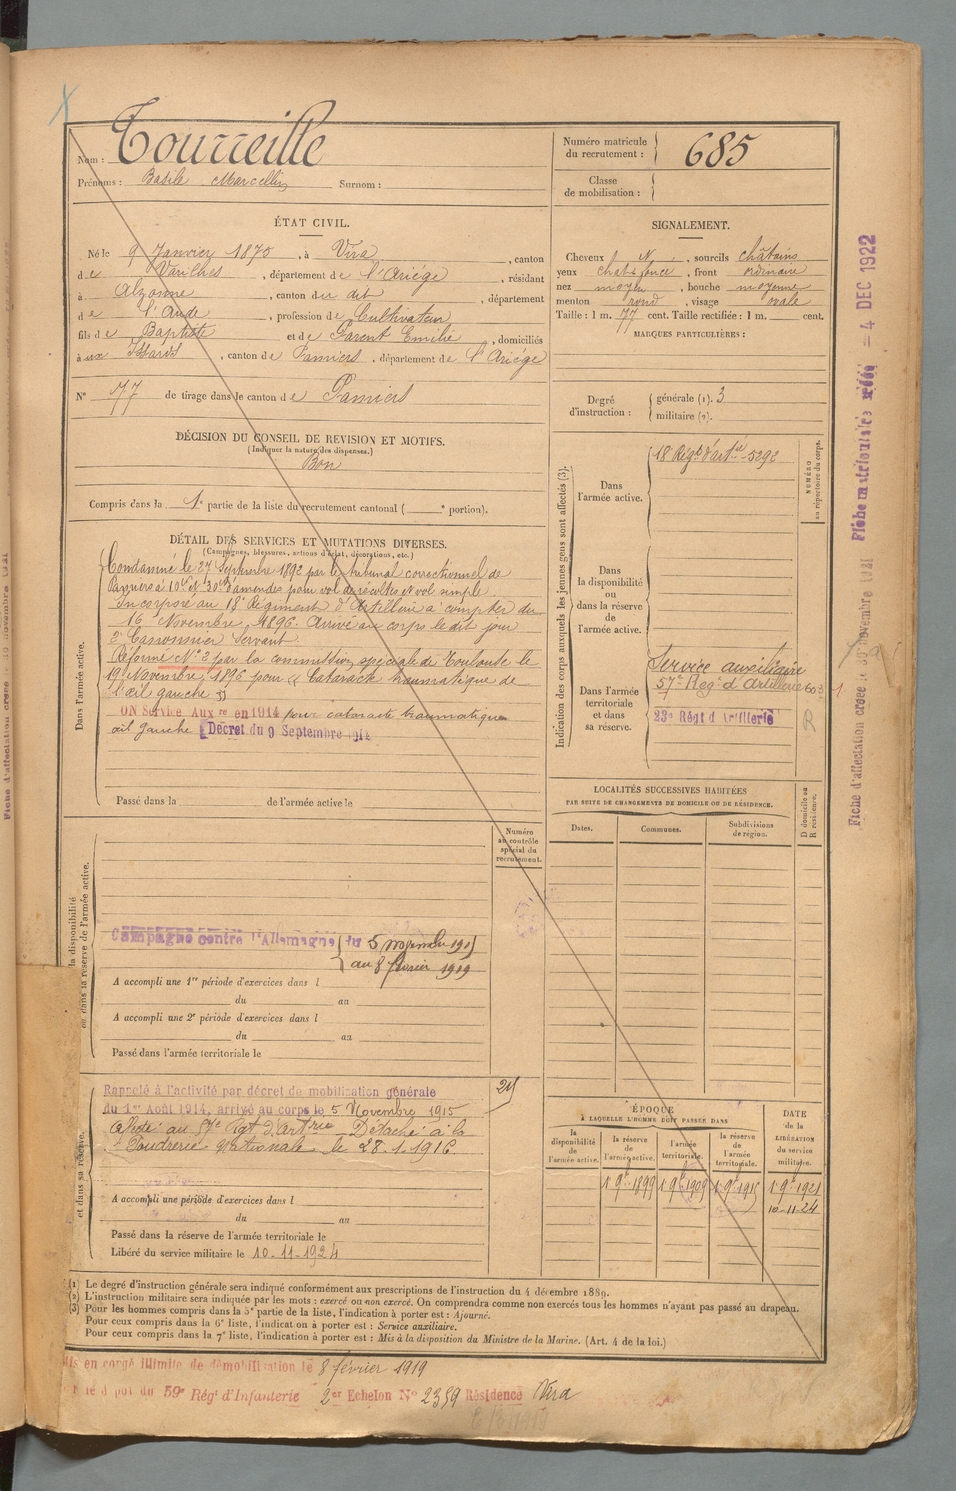 Nom : Tourreille
Prénoms : Basile Marcellin Surnom :
Numéro matricule du recrutement : 685
Classe de mobilisation :
ÉTAT CIVIL.
Né le 9 Janvier 1875, à Vira, canton
de Varilhes, département de l'Ariège, résidant
à Alzonne, canton du dit, département
de l'Aude, profession de Cultivateur
fils de Baptiste et de Parent Emilie, domiciliés
à aux Issards, canton de Pamiers, département de l'Ariège
N° 77 de tirage dans le canton de Pamiers
SIGNALEMENT.
Cheveux N, sourcils châtains
yeux chat. foncé, front ordinaire
nez moyen, bouche moyenne
menton rond, visage ovale
Taille : 1 m. 77 cent. Taille rectifiée : 1 m. cent.
MARQUES PARTICULIÈRES :
Degré d'instruction : générale (1). 3
militaire (2).
DÉCISION DU CONSEIL DE REVISION ET MOTIFS.
(Indiquer la nature des dispenses.)
Bon
Compris dans la 1e partie de la liste du recrutement cantonal ( e portion).
DÉTAIL DES SERVICES ET MUTATIONS DIVERSES.
(Campagnes, blessures, actions d'éclat, décorations, etc.)
Dans l'armée active.
Condamné le 27 Septembre 1892 par le tribunal correctionnel de
Pamiers à 10 et 30 d'amendes pour vol de récoltes et vol simple.
Incorporé au 18e Régiment d'Artillerie à compter du
16 Novembre 1896. Arrivé au corps le dit jour
2e Canonnier servant.
Réformé N° 2 par la commission spéciale de Toulouse le
19 Novembre 1896 pour « Cataracte traumatique de
l'œil gauche »
ON Service Auxre en 1914 pour cataracte traumatique
œil gauche Décret du 9 Septembre 1914
Passé dans la de l'armée active le
Indication des corps auxquels les jeunes gens sont affectés (3).
NUMÉRO au répertoire du corps.
Dans l'armée active.
18 Régt d'artie 5292
Dans la disponibilité ou dans la réserve de l'armée active.
Dans l'armée territoriale et dans sa réserve.
Service auxiliaire
57e Régt d'Artillerie
23e Régt d'Artillerie
R
LOCALITÉS SUCCESSIVES HABITÉES
PAR SUITE DE CHANGEMENTS DE DOMICILE OU DE RÉSIDENCE.
Dates. Communes. Subdivisions de région.
D domicile ou R résidence.
Numéro au contrôle spécial du recrutement.
la disponibilité ou dans la réserve de l'armée active.
Campagne contre l'Allemagne du 5 novembre 1915
au 8 février 1919
A accompli une 1re période d'exercices dans l
du au
A accompli une 2e période d'exercices dans l
du au
Passé dans l'armée territoriale le
et dans sa réserve.
Rappelé à l'activité par décret de mobilisation générale
du 1er Août 1914, arrivé au corps le 5 Novembre 1915
affecté au 57e Rgt d'Artrie Détaché à la
Poudrerie Nationale le 28.1.1916.
A accompli une période d'exercices dans l
du au
Passé dans la réserve de l'armée territoriale le
Libéré du service militaire le 10-11-1924
ÉPOQUE
A LAQUELLE L'HOMME DOIT PASSER DANS
la disponibilité de l'armée active.
la réserve de l'armée active.
l'armée territoriale.
la réserve de l'armée territoriale.
DATE de la LIBÉRATION du service militaire.
1 9e 1899 1 9e 1909 1 9e 1915 1 9e 1921
10-11-24
(1) Le degré d'instruction générale sera indiqué conformément aux prescriptions de l'instruction du 4 décembre 1889.
(2) L'instruction militaire sera indiquée par les mots : exercé ou non exercé. On comprendra comme non exercés tous les hommes n'ayant pas passé au drapeau.
(3) Pour les hommes compris dans la 5e partie de la liste, l'indication à porter est : Ajourné.
Pour ceux compris dans la 6e liste, l'indication à porter est : Service auxiliaire.
Pour ceux compris dans la 7e liste, l'indication à porter est : Mis à la disposition du Ministre de la Marine. (Art. 4 de la loi.)
Mis en congé illimité de démobilisation le 8 février 1919
dépôt du 59e Régt d'Infanterie 2er Echelon N° 2359 Résidence Vira
4 DEC 1922
Fiche d'affectation créée le novembre 1921